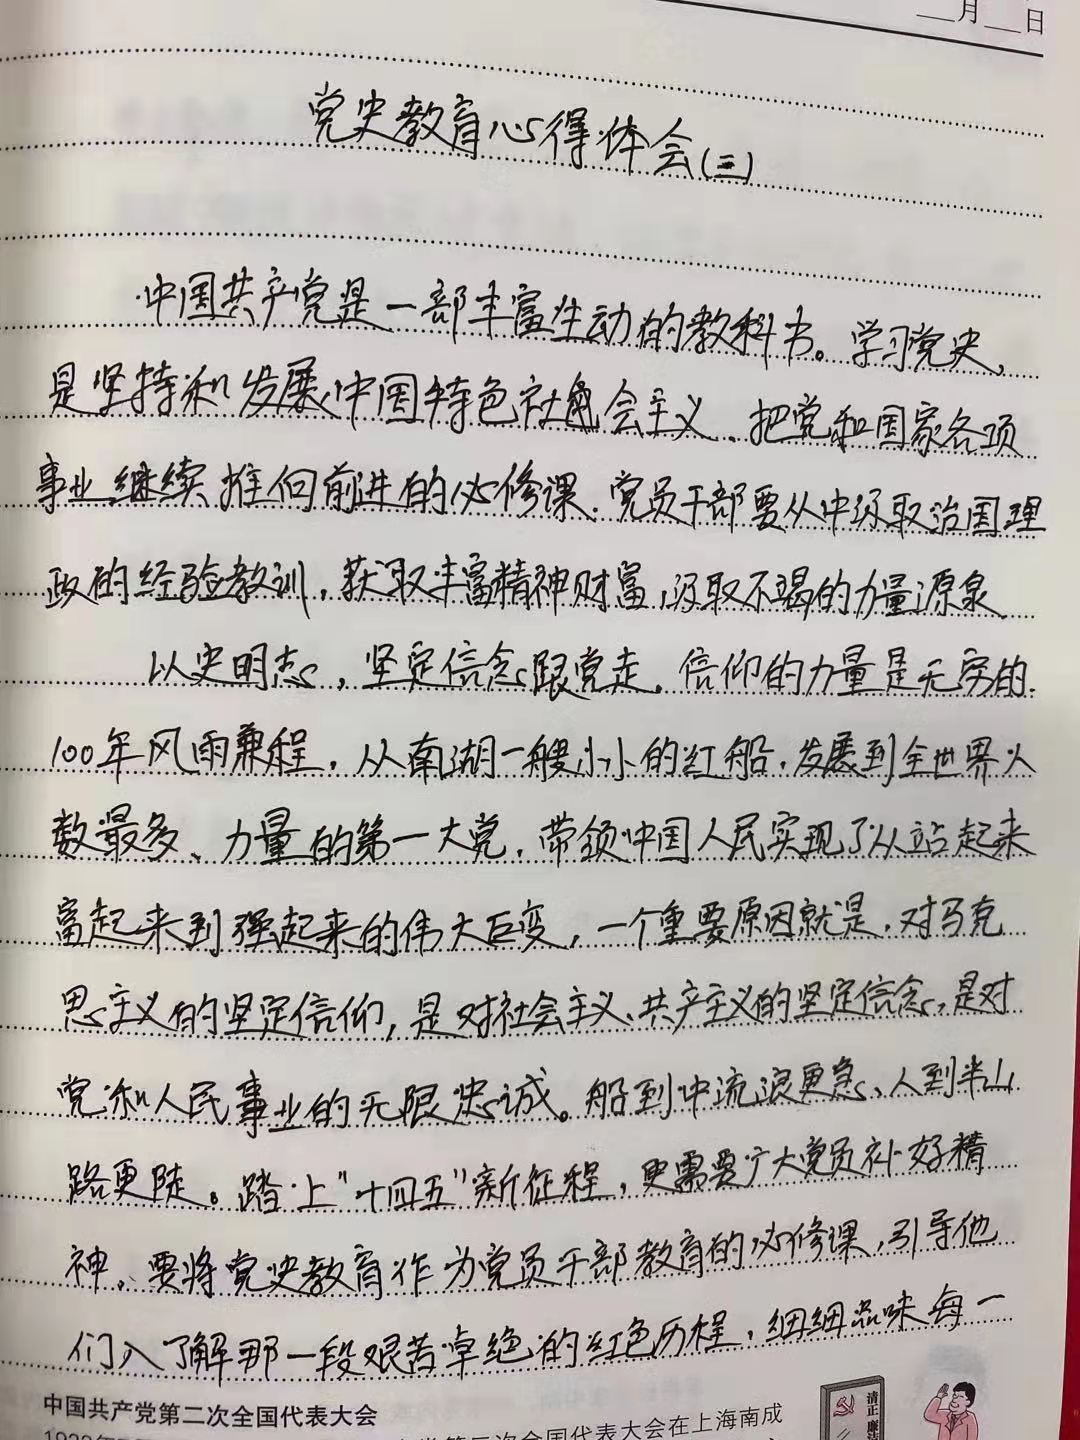 月 日
党史教育心得体会(三)
中国共产党是一部丰富生动的教科书。学习党史,
是坚持和发展中国特色社会主义、把党和国家各项
事业继续推向前进的必修课.党员干部要从中汲取治国理
政的经验教训,获取丰富精神财富,汲取不竭的力量源泉
以史明志,坚定信念跟党走.信仰的力量是无穷的.
100年风雨兼程,从南湖一艘小小的红船,发展到全世界人
数最多、力量的第一大党,带领中国人民实现了从站起来
富起来到强起来的伟大巨变,一个重要原因就是,对马克
思主义的坚定信仰,是对社会主义、共产主义的坚定信念,是对
党和人民事业的无限忠诚。船到中流浪更急、人到半山
路更陡。踏上“十四五”新征程,更需要广大党员补好精
神。要将党史教育作为党员干部教育的必修课,引导他
们入了解那一段艰苦卓绝的红色历程,细细品味每一
中国共产党第二次全国代表大会
第二次全国代表大会在上海南成
清正 廉洁